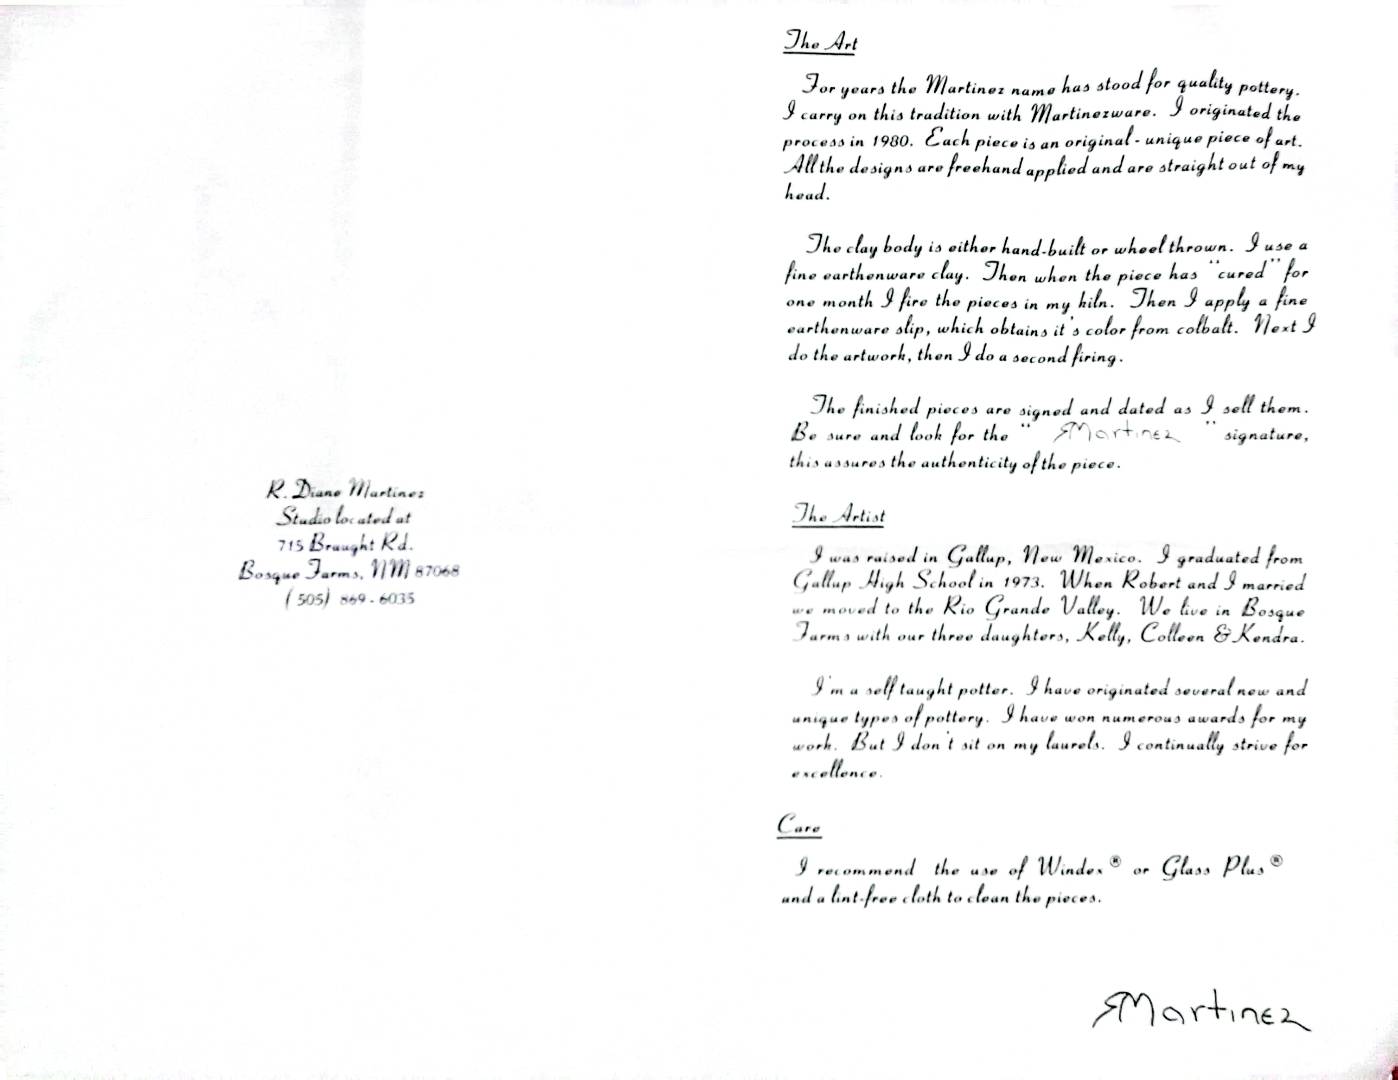 R. Diane Martinez
Studio located at
715 Braught Rd.
Bosque Farms, NM 87068
(505) 869-6035
The Art
For years the Martinez name has stood for quality pottery.
I carry on this tradition with Martinezware. I originated the
process in 1980. Each piece is an original - unique piece of art.
All the designs are freehand applied and are straight out of my
head.
The clay body is either hand-built or wheel thrown. I use a
fine earthenware clay. Then when the piece has "cured" for
one month I fire the pieces in my kiln. Then I apply a fine
earthenware slip, which obtains it's color from colbalt. Next I
do the artwork, then I do a second firing.
The finished pieces are signed and dated as I sell them.
Be sure and look for the " RMartinez " signature,
this assures the authenticity of the piece.
The Artist
I was raised in Gallup, New Mexico. I graduated from
Gallup High School in 1973. When Robert and I married
we moved to the Rio Grande Valley. We live in Bosque
Farms with our three daughters, Kelly, Colleen & Kendra.
I'm a self taught potter. I have originated several new and
unique types of pottery. I have won numerous awards for my
work. But I don't sit on my laurels. I continually strive for
excellence.
Care
I recommend the use of Windex® or Glass Plus®
and a lint-free cloth to clean the pieces.
RMartinez